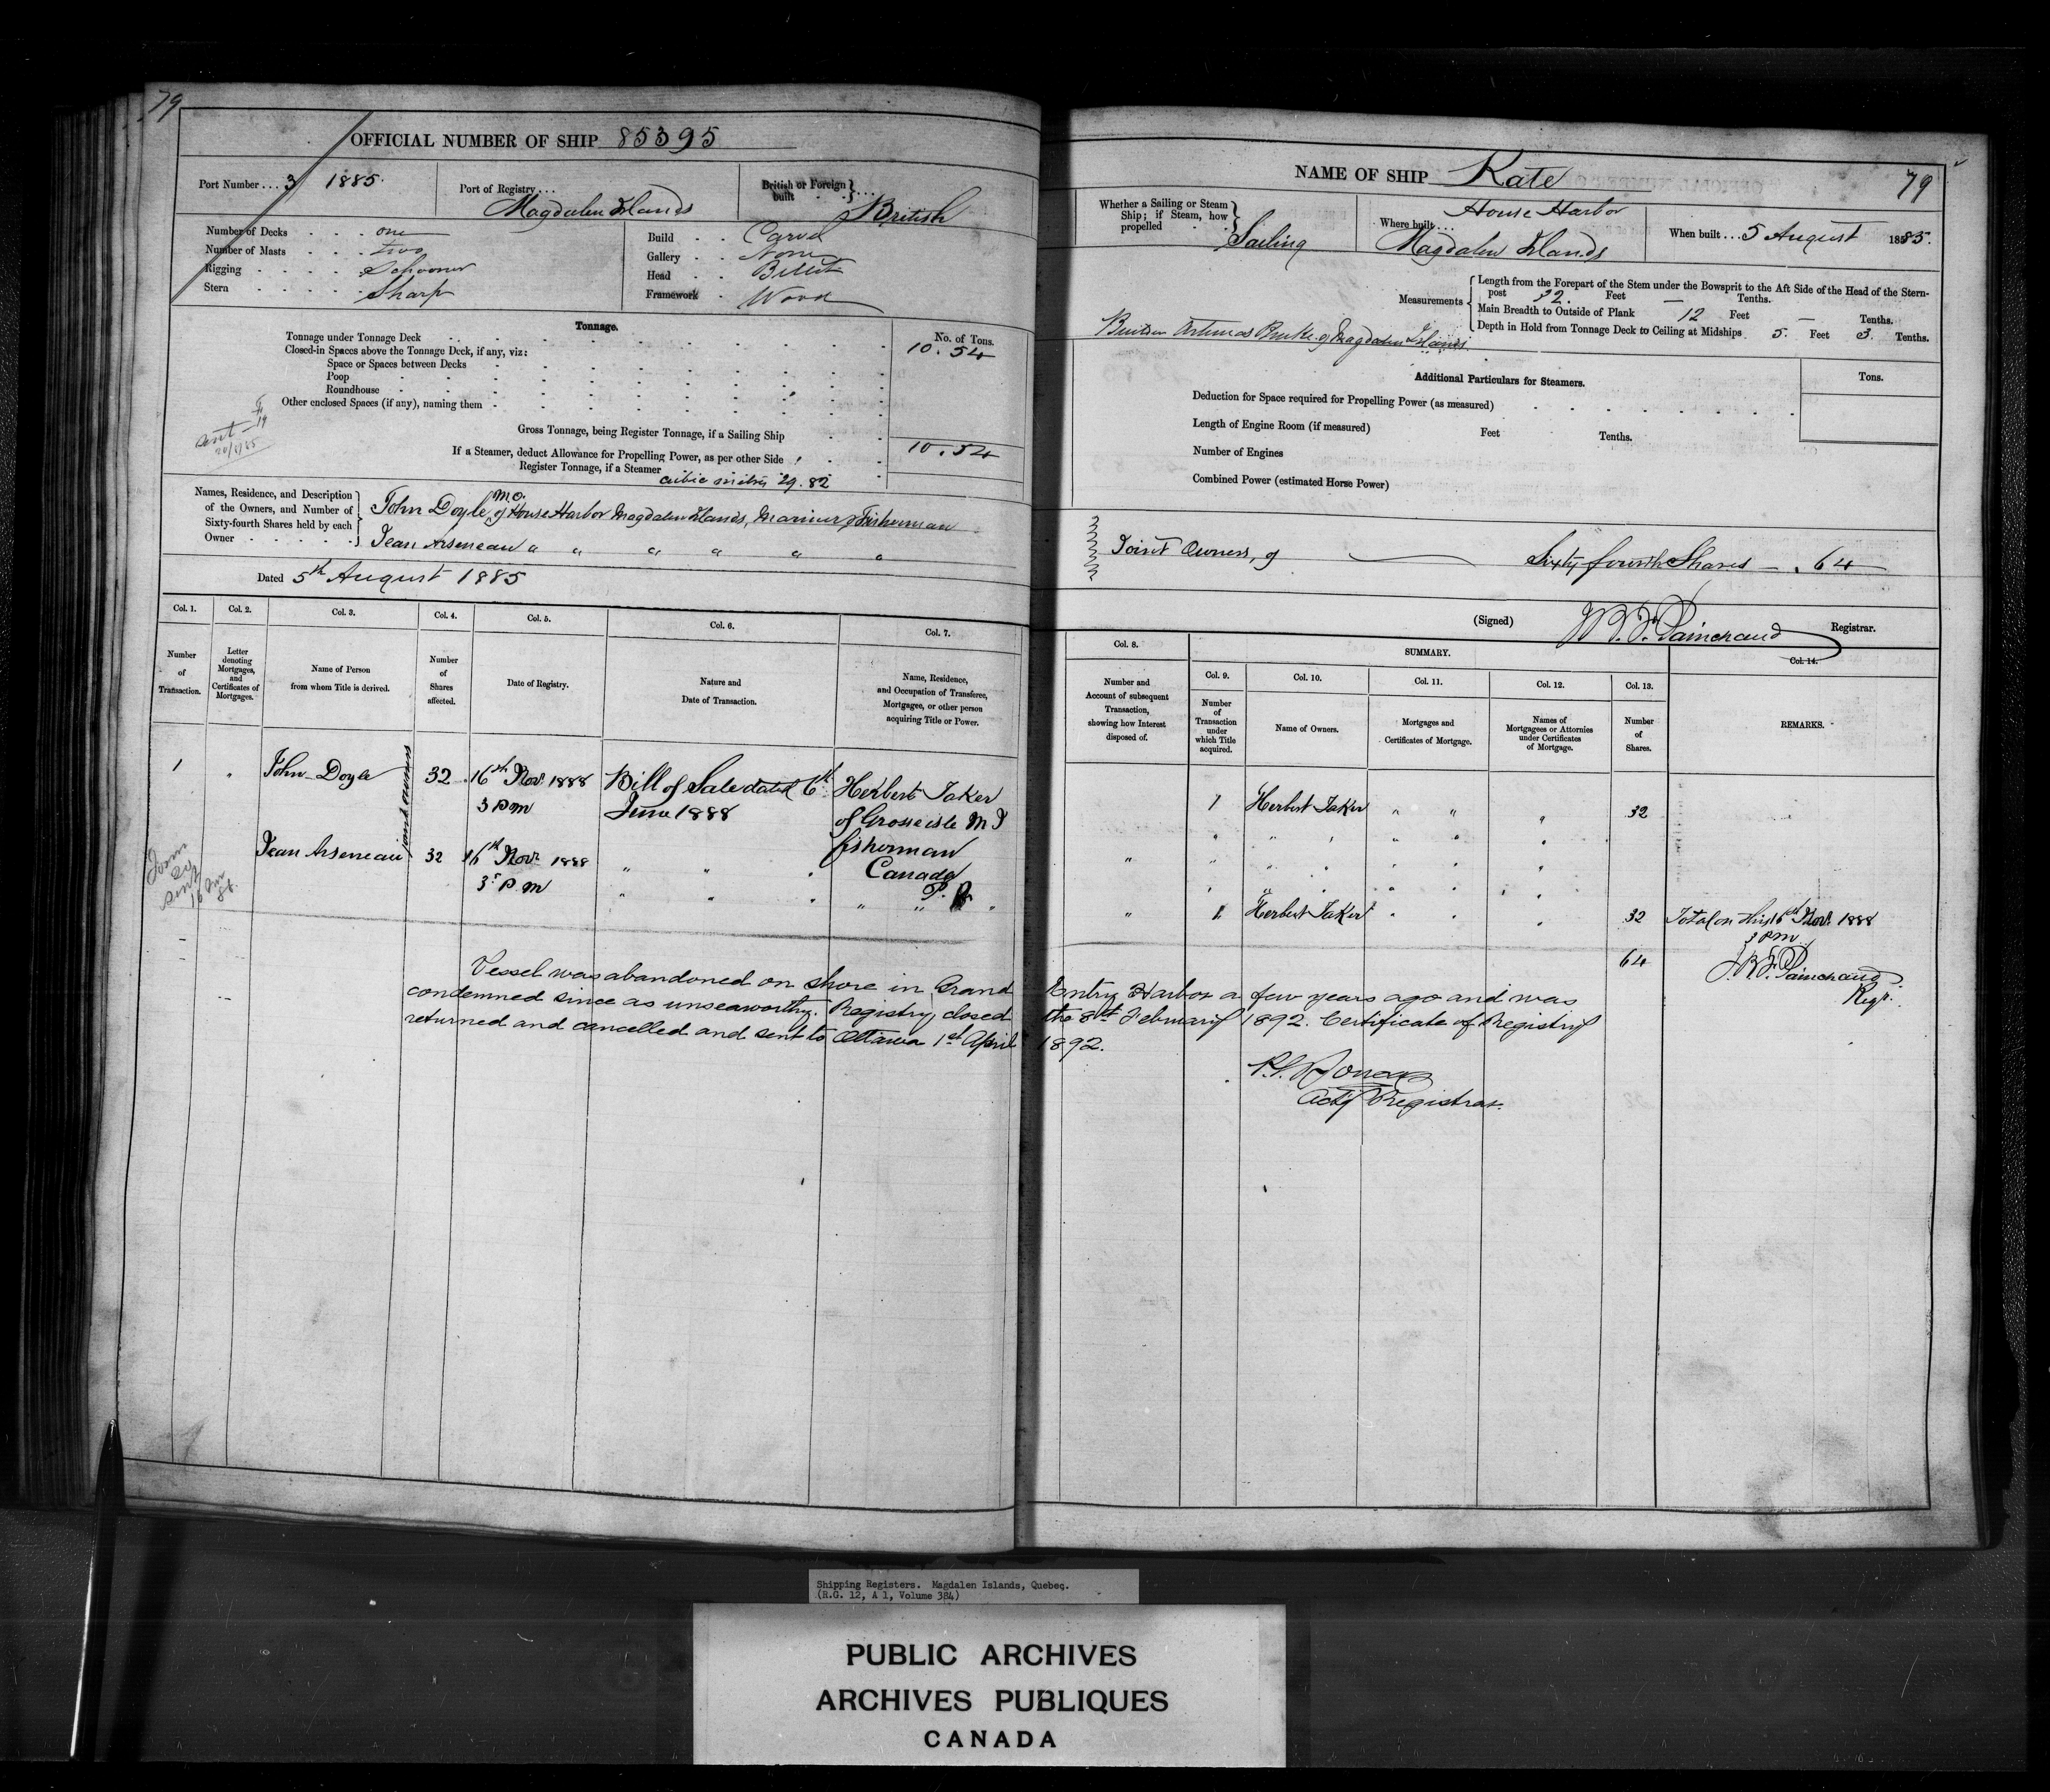 79
OFFICIAL NUMBER OF SHIP 85395
Port Number . . . 3 1885.
Port of Registry . . . Magdalen Islands
British or Foreign built . . . British
Number of Decks . . . one
Number of Masts . . . two
Rigging . . . . Schooner
Stern . . . . . Sharp
Build . . Carvel
Gallery . . None
Head . . Billet
Framework . Wood
Tonnage.
No. of Tons.
Tonnage under Tonnage Deck 10.54
Closed-in Spaces above the Tonnage Deck, if any, viz:
Space or Spaces between Decks
Poop
Roundhouse
Other enclosed Spaces (if any), naming them
sent
Gross Tonnage, being Register Tonnage, if a Sailing Ship
If a Steamer, deduct Allowance for Propelling Power, as per other Side 10.54
Register Tonnage, if a Steamer
cubic metres 29.82
Names, Residence, and Description of the Owners, and Number of Sixty-fourth Shares held by each Owner
John Doyle, M.O. of House Harbor Magdalen Islands, Mariner & Fisherman
Jean Arseneau " " " " " "
Dated 5th August 1885
Col. 1. Col. 2. Col. 3. Col. 4. Col. 5. Col. 6. Col. 7.
Number of Transaction.
Letter denoting Mortgages, and Certificates of Mortgages.
Name of Person from whom Title is derived.
Number of Shares affected.
Date of Registry.
Nature and Date of Transaction.
Name, Residence, and Occupation of Transferee, Mortgagee, or other person acquiring Title or Power.
1 " John Doyle 32 16th Novr 1888 Bill of Sale dated 6th Herbert Taker
3 P M June 1888 of Grosse isle M I
joint owners
fisherman
Jean Arseneau 32 16th Novr 1888 " " " Canada
3 P M " " " P. Q.
Form 20 sent 16 Nov 88.
Vessel was abandoned on shore in Grand
condemned since as unseaworthy. Registry closed
returned and cancelled and sent to Ottawa 1st April
NAME OF SHIP Kate 79
Whether a Sailing or Steam Ship; if Steam, how propelled Sailing
Where built . . . House Harbor
Magdalen Islands
When built . . . 5 August 1885.
Measurements
Length from the Forepart of the Stem under the Bowsprit to the Aft Side of the Head of the Stern-
post 32. Feet — Tenths.
Main Breadth to Outside of Plank 12 Feet — Tenths.
Depth in Hold from Tonnage Deck to Ceiling at Midships 5. Feet 3. Tenths.
Builder Artemas Burke of Magdalen Islands
Additional Particulars for Steamers.
Tons.
Deduction for Space required for Propelling Power (as measured)
Length of Engine Room (if measured) Feet Tenths.
Number of Engines
Combined Power (estimated Horse Power)
Joint Owners, of — Sixty fourth Shares — . 64
(Signed) J.B.F. Painchaud Registrar.
Col. 8. SUMMARY. Col. 14.
Col. 9. Col. 10. Col. 11. Col. 12. Col. 13.
Number and Account of subsequent Transaction, showing how Interest disposed of.
Number of Transaction under which Title acquired.
Name of Owners.
Mortgages and Certificates of Mortgage.
Names of Mortgagees or Attornies under Certificates of Mortgage.
Number of Shares.
REMARKS.
1 Herbert Taker " " " 32
" 1 Herbert Taker " " " 32 Total on this 16th Novr 1888
3 P M
64 J.B.F. Painchaud
Regr.
Entry Harbor a few years ago and was
the 8th February 1892. Certificate of Registry
1892.
Actg Registrar.
Shipping Registers. Magdalen Islands, Quebec.
(R.G. 12, A 1, Volume 384)
PUBLIC ARCHIVES
ARCHIVES PUBLIQUES
CANADA